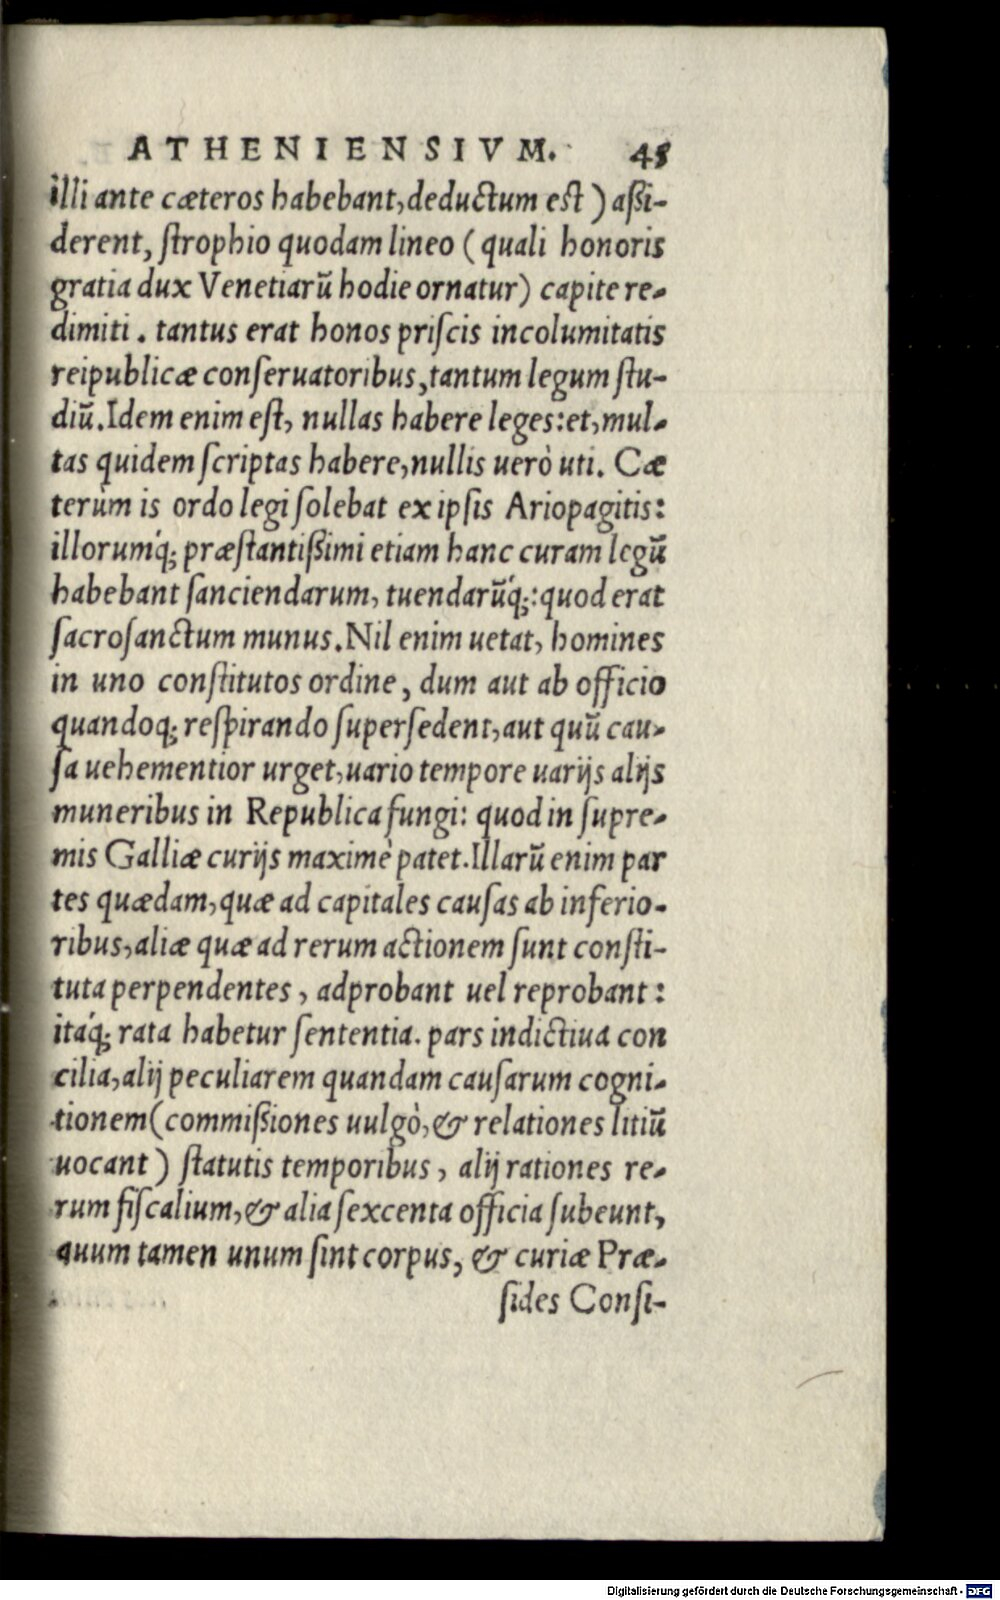 ATHENIENSIVM. 45
illi ante cæteros habebant, deductum est ) aßi-
derent, ſtrophio quodam lineo ( quali honoris
gratia dux Venetiarū hodie ornatur) capite re-
dimiti . tantus erat honos priſcis incolumitatis
reipublicæ conſeruatoribus, tantum legum ſtu-
diū. Idem enim eſt, nullas habere leges: et, mul-
tas quidem ſcriptas habere, nullis uerò uti. Cæ
terùm is ordo legi ſolebat ex ipſis Ariopagitis:
illorumq́; præſtantißimi etiam hanc curam legū
habebant ſanciendarum, tuendarūq́;: quod erat
ſacroſanctum munus. Nil enim uetat, homines
in uno conſtitutos ordine, dum aut ab officio
quandoq; reſpirando ſuperſedent, aut quū cau-
ſa uehementior urget, uario tempore uarijs alijs
muneribus in Republica fungi: quod in ſupre-
mis Galliæ curijs maximè patet. Illarū enim par
tes quædam, quæ ad capitales cauſas ab inferio-
ribus, aliæ quæ ad rerum actionem ſunt conſti-
tuta perpendentes, adprobant uel reprobant:
itaq́; rata habetur ſententia. pars indictiua con
cilia, alij peculiarem quandam cauſarum cogni-
tionem (commißiones uulgò, & relationes litiū
uocant ) ſtatutis temporibus, alij rationes re-
rum fiſcalium, & alia ſexcenta officia ſubeunt,
quum tamen unum ſint corpus, & curiæ Præ-
ſides Conſi-
Digitalisierung gefördert durch die Deutsche Forschungsgemeinschaft - DFG